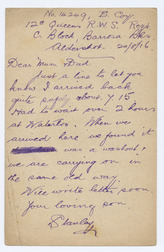 No 14249, B. Coy.
12th Queens R.W.S. Regt
C. Block, Barrosa Bks
Aldershot. 20/5/16
Dear Mum & Dad.
Just a line to let you
know I arrived back
quite safely about 9.15
Had to wait over 2 hours
at Waterloo. When we
arrived here we found it
was a washout &
we are carrying on in
the same old way.
Will write letter soon
Your loving son
Stanley